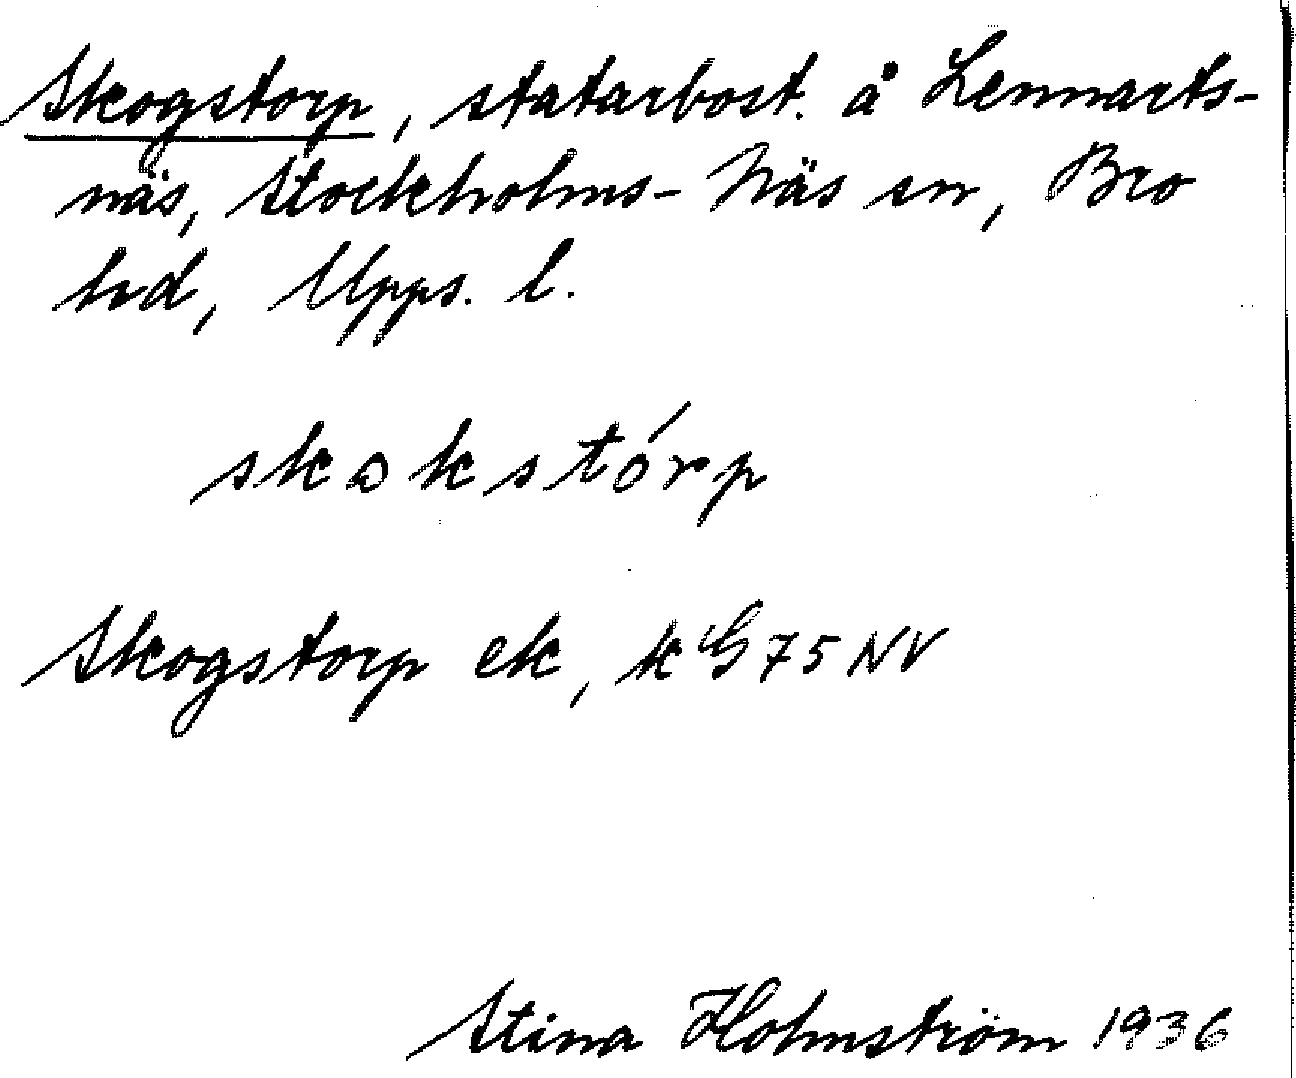 Skogstorp, statarbost. å Lennarts-
näs, Stockholms-Näs sn, Bro
hd, Upps. l.
skɷkstórp
Skogstorp ek, k G 75 NV
Stina Holmström 1936